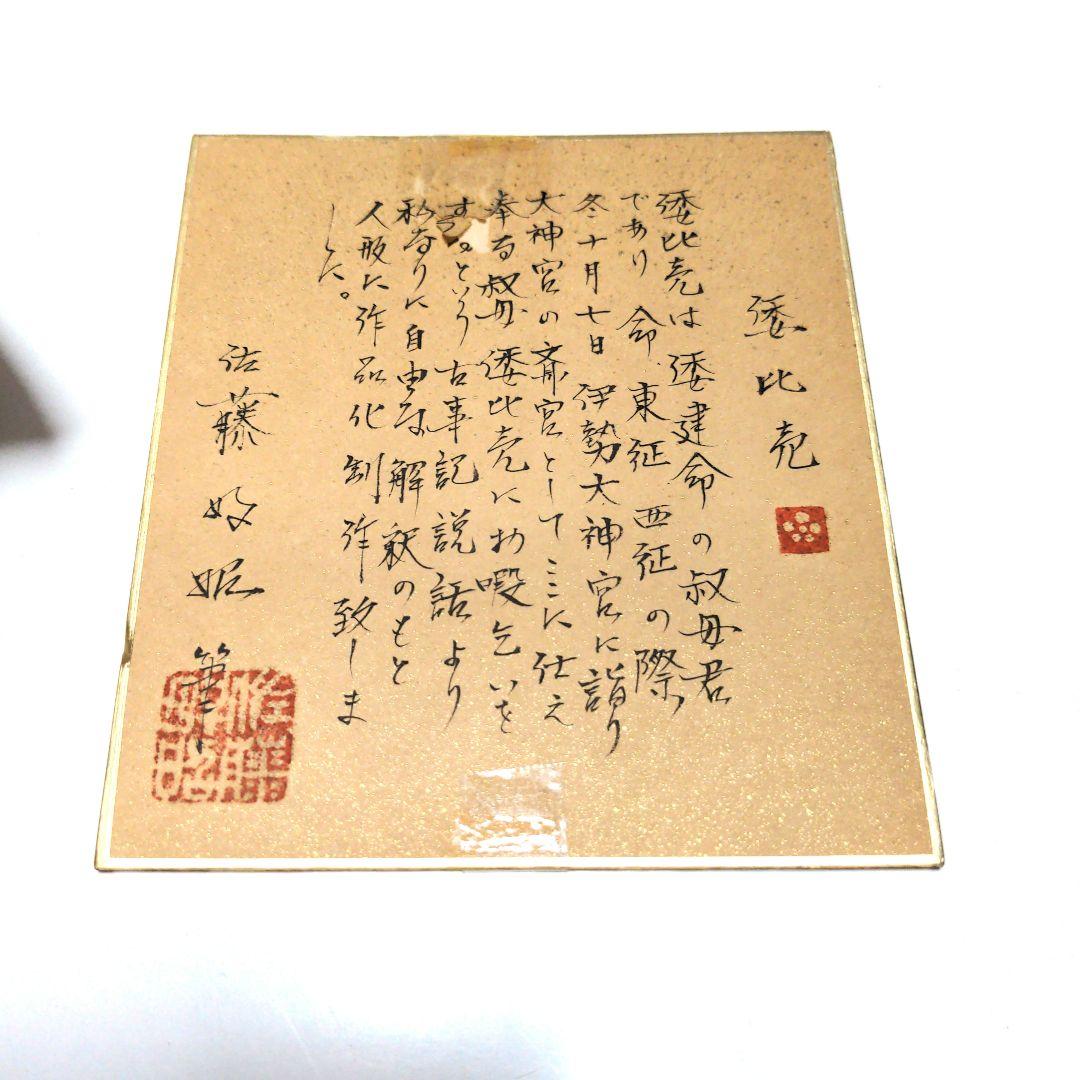 倭比売
倭比売は倭建命の叔母君
であり 命 東征 西征の際
冬十月七日 伊勢大神宮に詣り
大神宮の斎宮としてここに仕え
奉る叔母 倭比売にお暇乞いを
するという 古事記 説話より
私なりに自由な解釈のもと
人形に作品化 制作致しま
した。
佐藤 好姫 筆